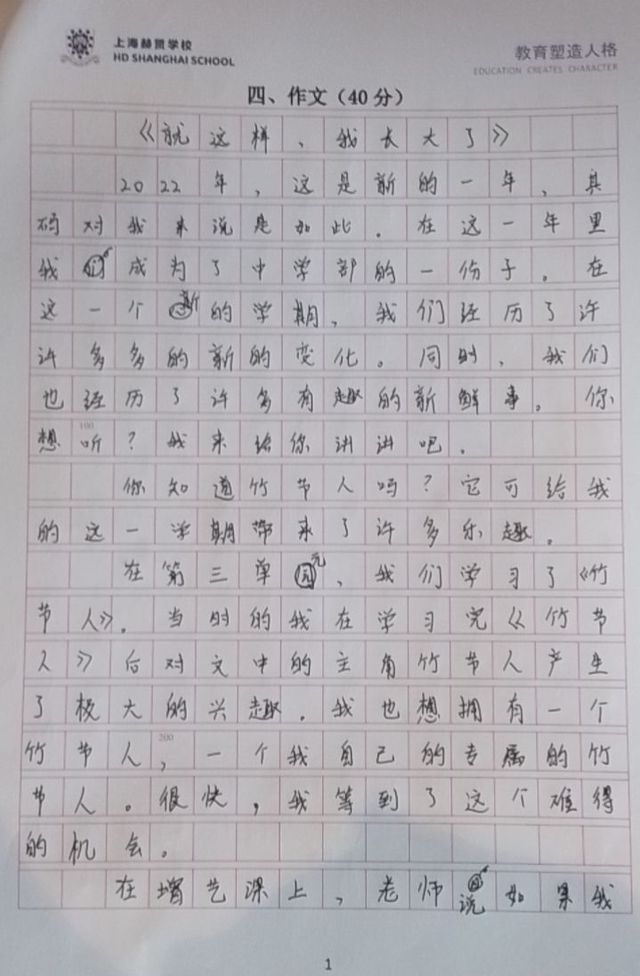 上海赫贤学校
HD SHANGHAI SCHOOL
教育塑造人格
EDUCATION CREATES CHARACTER
四、作文（40分）
《就这样、我长大了》
2022年，这是新的一年、其
码对我来说是如此。在这一年里
我成为了中学部的一份子。在
这一个新的学期，我们经历了许
许多多的新的变化。同时、我们
也经历了许多有趣的新鲜事。你
想听？我来给你讲讲吧。
100
你知道竹节人吗？它可给我
的这一学期带来了许多乐趣。
在第三单元，我们学习了《竹
节人》。当时的我在学习完《竹节
人》后对文中的主角竹节人产生
了极大的兴趣。我也想拥有一个
竹节人，一个我自己的专属的竹
200
节人。很快，我等到了这个难得
的机会。
在增艺课上，老师说如果我
1